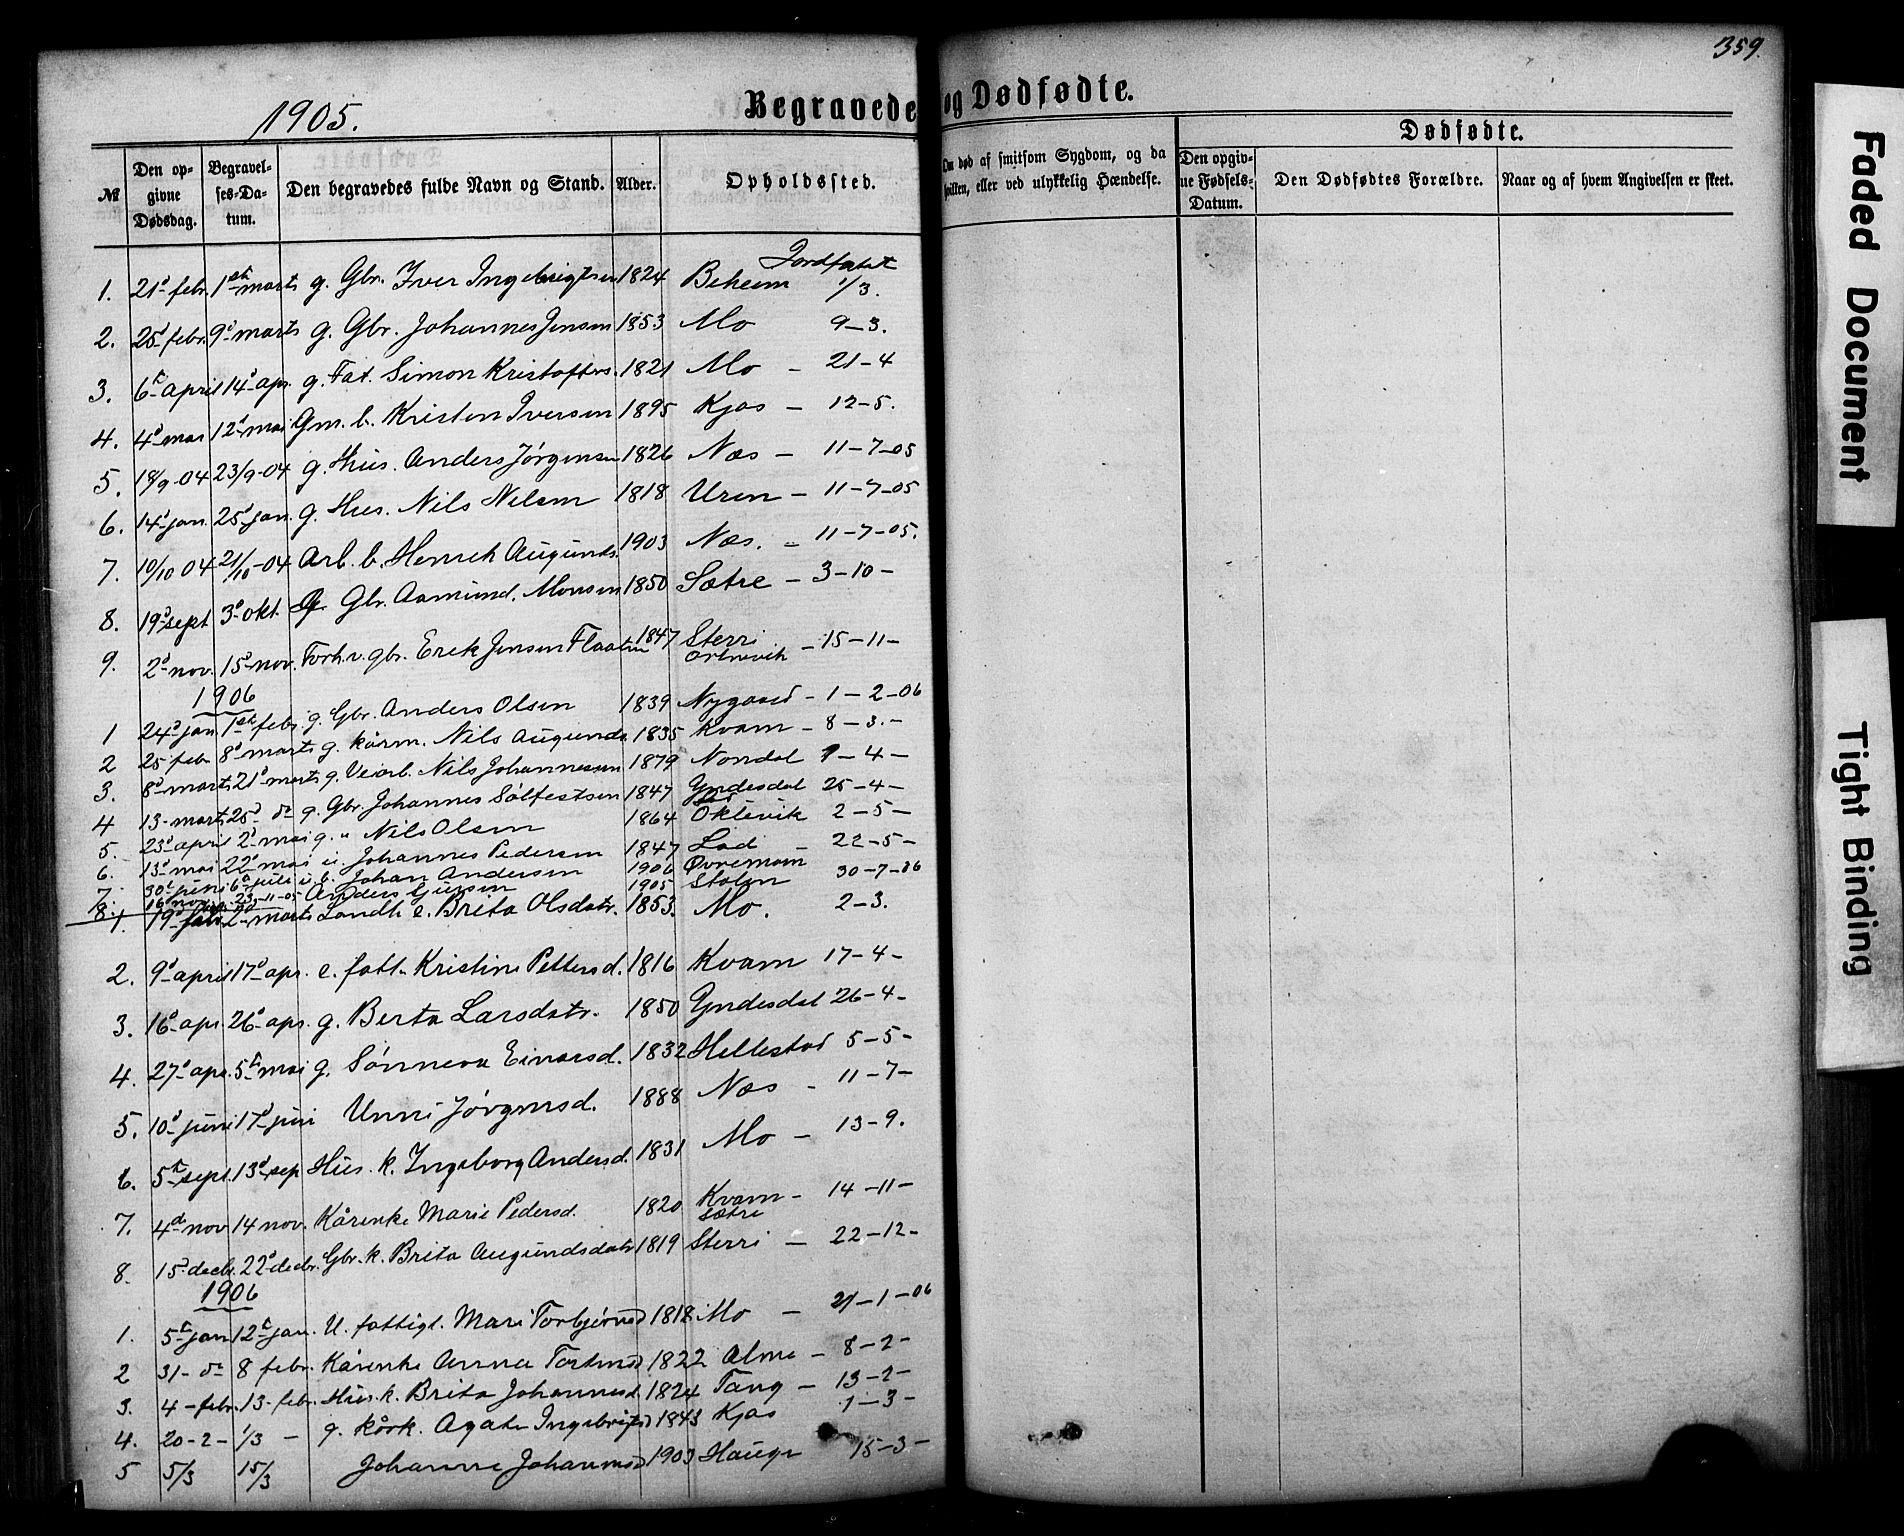 359.
1905.
Begravede og Dødfødte.
№
Den opgivne Dødsdag.
Begravelses-Datum.
Den begravedes fulde Navn og Stand.
Alder.
Opholdssted.
Om død af smitsom Sygdom, og da hvilken, eller ved ulykkelig Hændelse.
Dødfødte.
Den opgivne Fødsels-Datum.
Den Dødfødtes Forældre.
Naar og af hvem Angivelsen er skeet.
Jordfæstet
1. 21d febr. 1ste marts g. Gbr. Iver Ingebrigtsen 1824 Beheim 1/3.
2. 25d febr. 9d marts g. Gbr. Johannes Jensen 1853 Mo 9-3.
3. 6te april 14d apr. g. Fat. Simon Kristoffers. 1821 Mo - 21-4
4. 4d mai 12d mai Gm. b. Kristen Iversen 1895 Kjos - 12-5.
5. 18/9-04 23/9-04 g. Hus. Anders Jørgensen 1826 Næs - 11-7-05
6. 14d jan. 25d jan. g. Hus. Nils Nilsen 1818 Uren - 11-7-05
7. 10/10 04 21/10-04 Arb. b. Henrik Augunds. 1903 Næs. - 11-7-05.
8. 19d sept 3d okt. g. Gbr. Aamund. Monsen 1850 Sætre - 3-10-
9. 2d nov. 15d nov. Forh.v. gbr. Erik Jensen Flaaten 1847 Sterri Ortnevik - 15-11-
1906
1 24d jan. 1ste febr. g. Gbr. Anders Olsen 1839 Nygaard - 1-2-06
2 25 febr 8d marts g. kårm. Nils Augunds. 1835 Kvam - 8-3.-
3. 8d marts 21d marts g. Veiarb. Nils Johannessen 1879 Nondal 1-4-
4 13-marts 25d do g. Gbr. Johannes Sølfestsen 1847 Yndesdal 25-4-
5. 23d april 2d mai g. " Nils Olsen 1864 Oklevik 2-5-
6. 13d mai 22d mai u. Johannes Pedersen 1847 Lad - 22-5-
7. 30d juni 6d juli u. b. Johan Andersen 1906 Øvremoin 30-7-06
8. 16d nov. 23-11-05 Anders 1905 Stølen
1. 19d febr 2d marts Landh. e. Brita Olsdatr. 1853. Mo. 2-3.
2. 9d april 17d apr. e. fatt. Kristine Pettersd. 1816 Kvam 17-4-
3. 16d apr. 26d apr. g. Berta Larsdatr. 1850 Yndesdal 26-4-
4. 27d apr. 5te mai g. Sønneva Einarsd. 1832 Hellestad 5-5-
5. 10d juni 17d juni Unni Jørgensd. 1888 Næs - 11-7-
6. 5te sept. 13d sep Hus. k. Ingeborg Andersd. 1831 Mo - 13-9.
7. 4de nov 14 nov. Kårenke Marie Pedersd. 1820 Kvam - sætre 14-11-
8. 15d decbr. 22 decbr. Gbr. k. Brita Augundsdatr 1819 Sterri - 22-12-
1906
1. 5te jan 12te jan. U. fattigl. Mari Torbjørnsd 1818 Mo - 21-1-06
2 31- do 8 febr. Kårenke Anna 1822 Alme - 8-2-
3. 4-febr. 13-febr. Hus. k. Brita Johannesd. 1824 Tang - 13-2-
4. 20-2- 1/3 - g. kårk. Agate Ingebrigtsd 1843 Kjos 1-3-
5 5/3 15/3 Johanne Johannesd 1903 Hauge 15-3-
Faded Document
Tight Binding